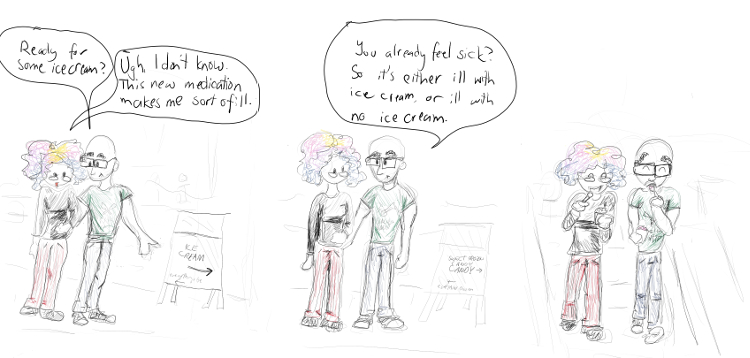 Ready for
some ice cream?
Ugh, I don't know.
This new medication
makes me sort of ill.
ICE
CREAM
You already feel sick?
So it's either ill with
ice cream, or ill with
no ice cream.
CANDY